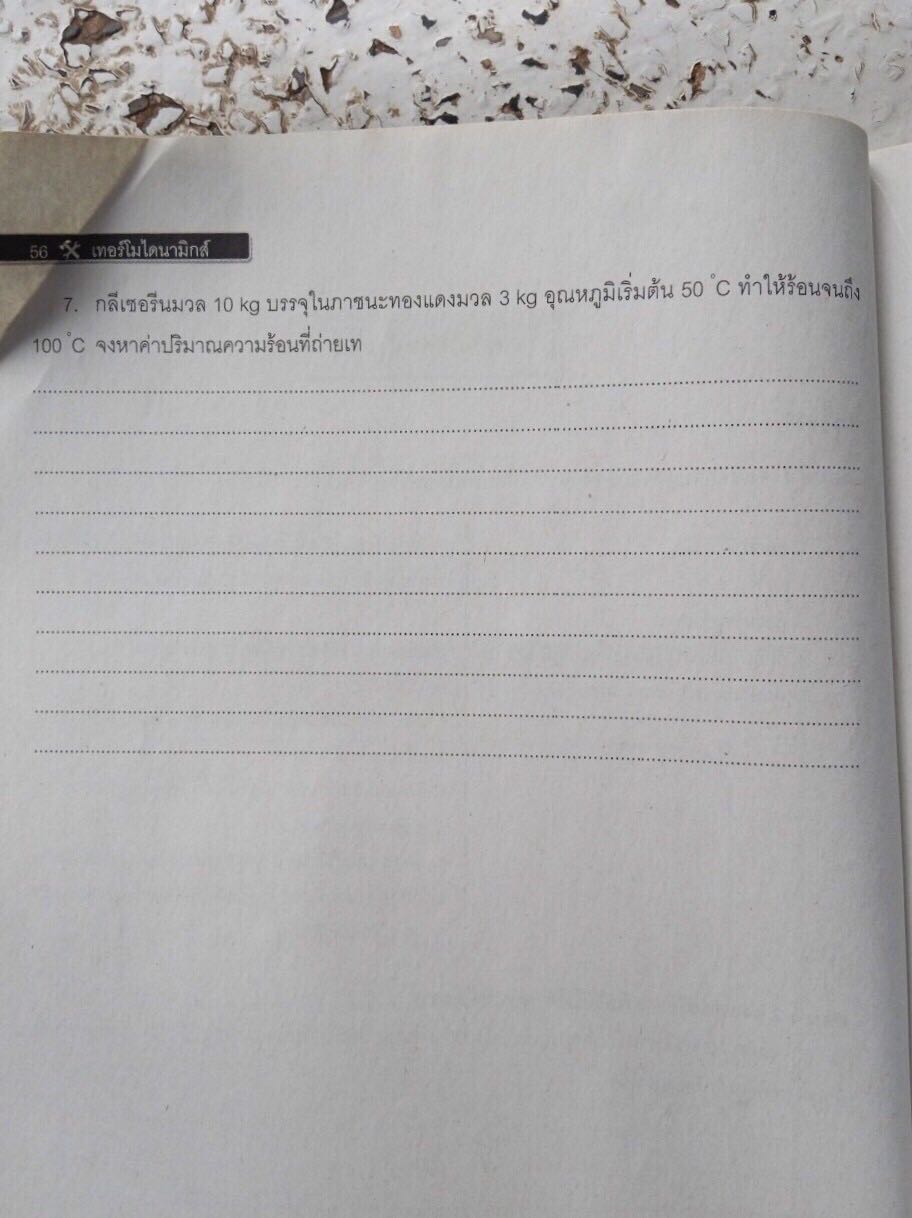 56 เทอร์โมไดนามิกส์
7. กลีเซอรีนมวล 10 kg บรรจุในภาชนะทองแดงมวล 3 kg อุณหภูมิเริ่มต้น 50 °C ทำให้ร้อนจนถึง
100 °C จงหาค่าปริมาณความร้อนที่ถ่ายเท